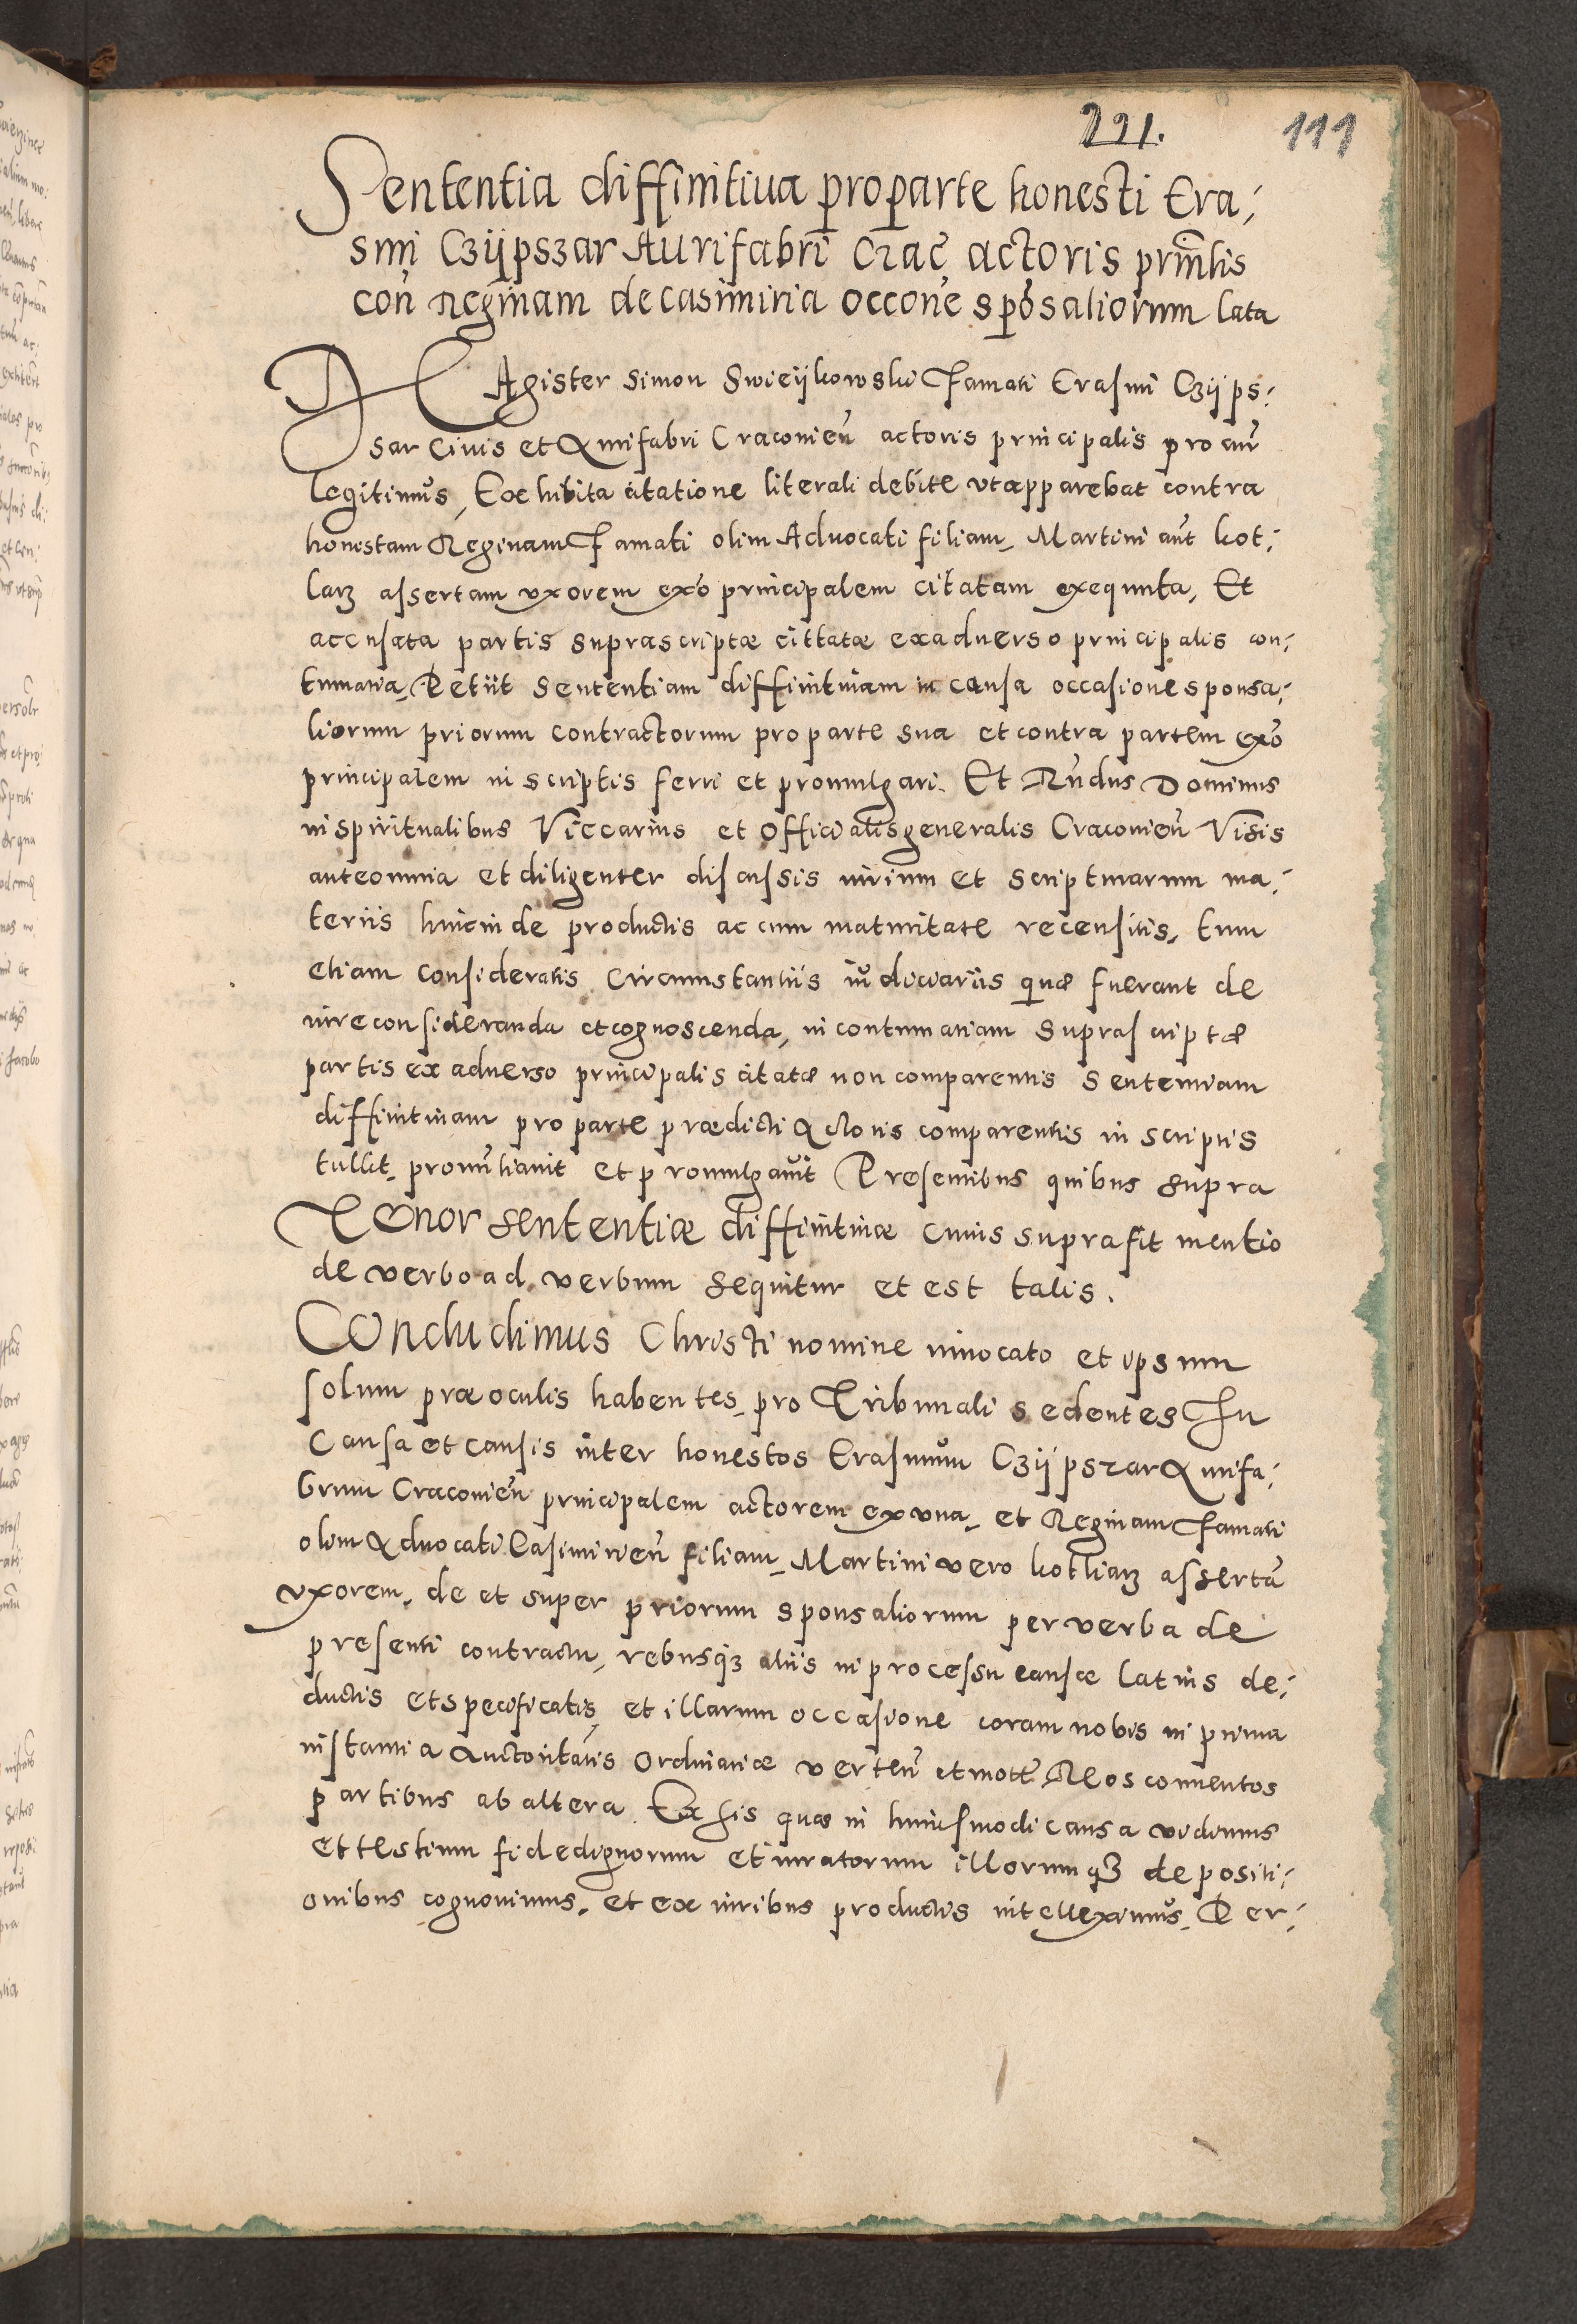 221. 111
Sententia diffinitiua pro parte honesti Era,
smi Czijpszar Aurifabri Crac̃ actoris prin̄lis
con̄ Reginam de casimiria occon̄e spōsaliorum lata
MAgister Simon Swieijkowski Famati Erasmi Czijps,
sar Civis et Aurifabri Craconien̄ actoris principalis procur̄
legitimus, Exhibita citatione literali debite vt apparebat contra
honestam Reginam Famati olim Advocati filiam, Martini aut̄ kot,
larz assertam vxorem exō principalem citatam exequuta, Et
accusata partis suprascriptæ cittatæ ex aduerso principalis con,
tumatia, Petiit Sententiam diffinitiuam in causa occasione sponsa,
liorum priorum contractorum pro parte sua et contra partem exō
principalem in scriptis ferri et promulgari. Et Rn̄dus Dominus
in spiritualibus Viccarius et Officialis generalis Craconien̄ Visis
ante omnia et diligenter discussis iurium et scripturarum ma,
teriis hincinde productis ac cum maturitate recensitis, tum
etiam consideratis circumstantiis iudiciariis quæ fuerant de
iure consideranda et cognoscenda, in contumatiam suprascriptæ
partis ex aduerso principalis citatæ non comparentis Sententiam
diffinitiuam pro parte prædicti Actoris comparentis in scriptis
tullit, pronun̄tiauit et promulgauit Presentibus quibus supra
Tenor sententiæ diffinitiuæ cuius supra fit mentio
de verbo ad verbum sequitur et est talis.
COncludimus Christi nomine inuocato et ipsum
solum præ oculis habentes, pro Tribunali sedentes In
Causa et causis inter honestos Erasmum Czijpszar Aurifa,
brum Craconien̄ principalem actorem ex vna, et Reginam Famati
olim Advocati Casimirien̄ filiam, Martini vero kotliarz assertā
vxorem, de et super priorum sponsaliorum per verba de
presenti contractu, rebusq3 aliis in processu causæ latius de,
ductis et specificatis, et illarum occasione coram nobis in prima
instantia Auctoritatis Ordinariæ verten̄ et mott̄, Reos conuentos
partibus ab altera. Ex his quæ in huiusmodi causa vidimus
et testium fide dignorum et iuratorum illorumq3 depositi,
onibus cognouimus, et ex iuribus productis intelleximus, Per,